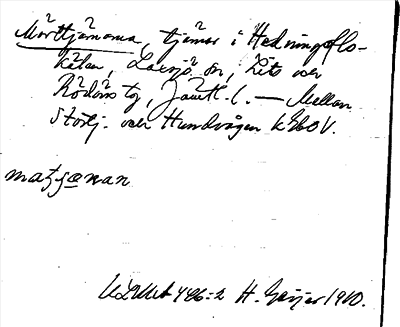 Mörttjärnarna, tjärnar i Hedningsflo-
kälen, Laxsjö sn, Lits och
Rödöns tg, Jämtl. l. — Mellan
Storsj. och Hundvågen kSboV.
matjænan
ULMA 446:2 H. Geijer 1910.